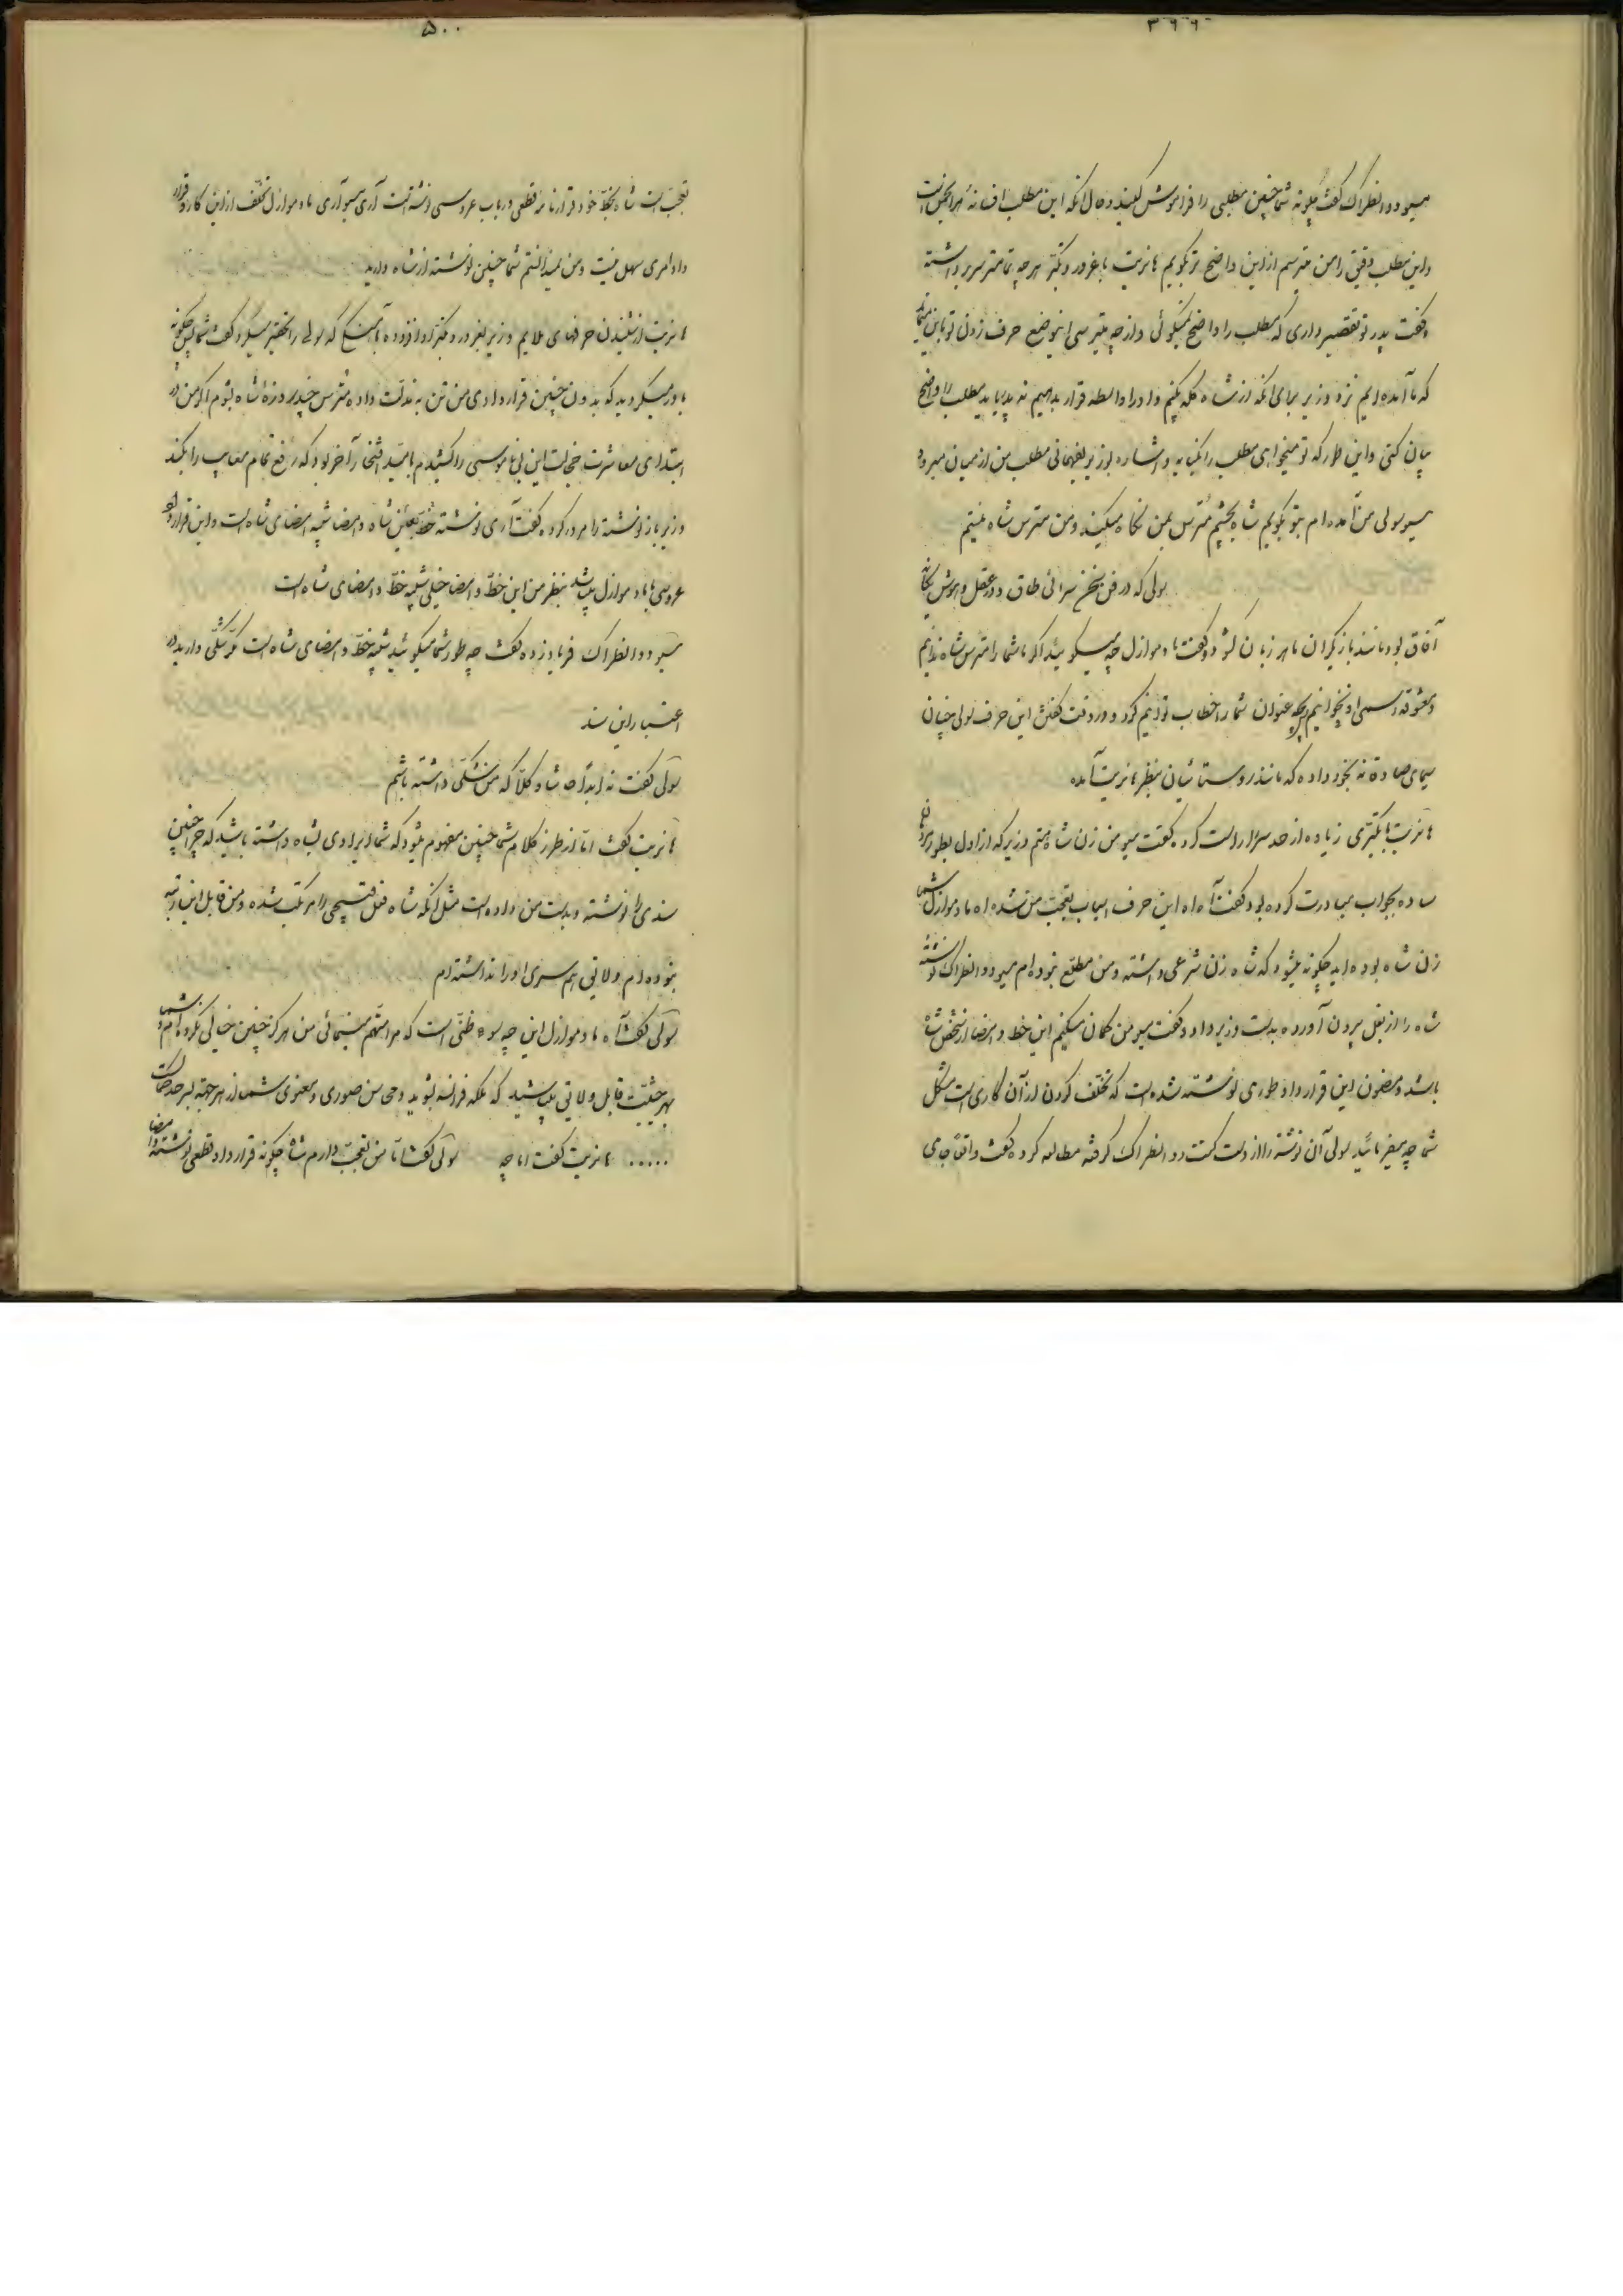 ۴۹۹
مسیو دوانطراک گفت چگونه شما چنین مطلبی را فراموش میکنید و حال آنکه این مطلب افسانه هر انجمن است
و این مطلب دقیق را من میترسم از این واضح تر بگویم هانریت با غرور و تکبر هر چه تمامتر سر برداشته
گفت پدر تو تقصیر داری که مطلب را واضح نمیگوئی و از چه میترسی اینوضع حرف زدن تو باین میماند
که ما آمده ایم نزد وزیر برای آنکه از شاه گله بکنیم و او را واسطه قرار بدهیم نه پدر باید مطلب را واضح
بیان کنی و این طور که تو میخواهی مطلب را بکنایه و اشاره بوزیر بفهمانی مطلب من از میان میرود
مسیو سولی من آمده ام بتو بگویم شاه بچشم مترس بمن نگاه میکند و من مترس شاه نیستم
سولی که در فن سخن سرائی طاق و در عقل و هوش یگانه
آفاق بود مانند بازیگران ماهر زبان گشوده و گفت مادموازل چه میگوئید اگر ما شما را مترس شاه ندانیم
و معشوقه رسمی او نخوانیم پس بچه عنوان شما را خطاب توانیم کرد و در وقت گفتن این حرف سولی چنان
سیمای صادقانه بخود داده که مانند روستائیان بنظر هانریت آمد
هانریت با تکبری زیاده از حد سر را راست کرده گفت مسیو من زن شاه هستم وزیر که از اول بطور مردمان
ساده بجواب مبادرت کرده بود گفت آه آه این حرف اسباب تعجب من شد آه آه مادموازل شما
زن شاه بوده اید چگونه میشود که شاه زن شرعی داشته و من مطلع نبوده ام مسیو دوانطراک نوشته
شاه را از بغل بیرون آورده بدست وزیر داد و گفت مسیو من گمان میکنم این خط و امضا از شخص شاه
باشد و مضمون این قرارداد طوری نوشته شده است که تخلف کردن از آن کاری است مشکل
شما چه میفرمائید سولی آن نوشته را از دست کنت دوانطراک گرفته مطالعه کرده گفت واقعا جای
۵۰۰
تعجب است شاه بخط خود قرارنامه قطعی در باب عروسی نوشته است آری مسیو آری مادموازل تخلف از این کار و قرار
داد امری سهل نیست و من نمیدانستم شما چنین نوشته از شاه دارید
هانریت از شنیدن حرفهای ملایم وزیر بغرور و تکبر او افزوده با آهنگی که سولی را تحقیر میکرد گفت شما پس چگونه
باور میکردید که بدون چنین قراردادی من تن بمذلت داده مترس چند روزهٔ شاه بشوم اگر من در
ابتدای معاشرت خجالت این بی ناموسی را کشیدم بامید افتخار آخر بود که رفع تمام معایب را بکند
وزیر باز نوشته را مرور کرده گفت آری نوشته خط بعینه شاه و امضا شبیه امضای شاه است و این قرارداد
عروسی با مادموازل میباشد بنظر من این خط و امضا خیلی شبیه خط و امضای شاه است
مسیو دوانطراک فریاد زده گفت چه طور شما میگوئید شبیه خط و امضای شاه است مگر شکی دارید در
اعتبار این سند
سولی گفت نه ابدا حاشا و کلا که من شکی داشته باشم
هانریت گفت اما از طرز کلام شما چنین مفهوم میشود که شما ایرادی بشاه داشته باشید که چرا چنین
سندی را نوشته و بدست من داده است مثل آنکه شاه فعل قبیحی را مرتکب شده و من قابل این رتبه
نبوده ام و لایق همسری او را نداشته ام
سولی گفت آه مادموازل این چه سوء ظنی است که مرا متهم مینمائی من هرگز چنین خیالی نکرده ام و شما
بهر حیثیت قابل و لایق میباشید که ملکه فرانسه بشوید و محاسن صوری و معنوی شما از هر جهة بسرحد کمال است
..... هانریت گفت اما چه سولی گفت اما من تعجب دارم شاه چگونه قرارداد قطعی نوشته و امضا